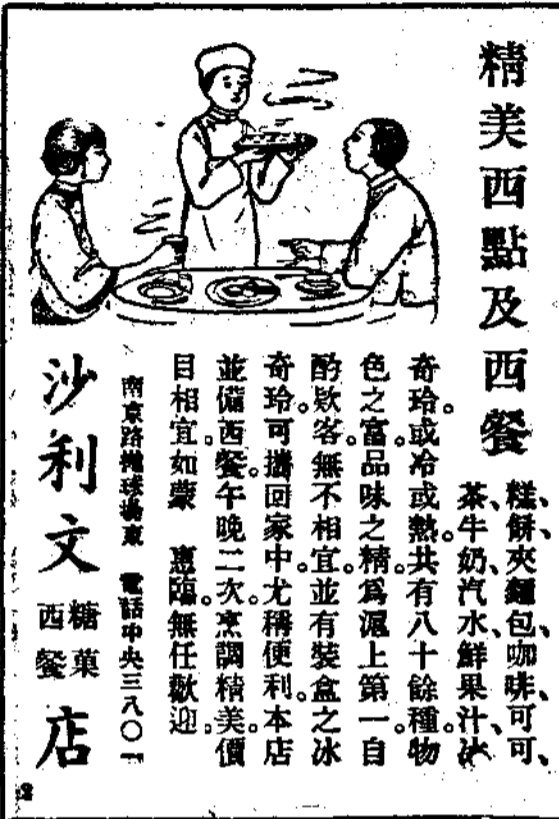 精美西點及西餐
糕餅、夾麵包、咖啡、可可、
茶、牛奶、汽水、鮮果汁、冰
奇玲。或冷或熱。共有八十餘種。物
色之富。品味之精。為滬上第一。自
酌欵客。無不相宜。並有裝盒之冰
奇玲。可攜回家中。尤稱便利。本店
並備西餐。午晚二次。烹調精美。價
目相宜。如蒙 惠臨。無任歡迎。
南京路拋球場東 電話中央三八〇一
沙利文糖菓西餐店
2